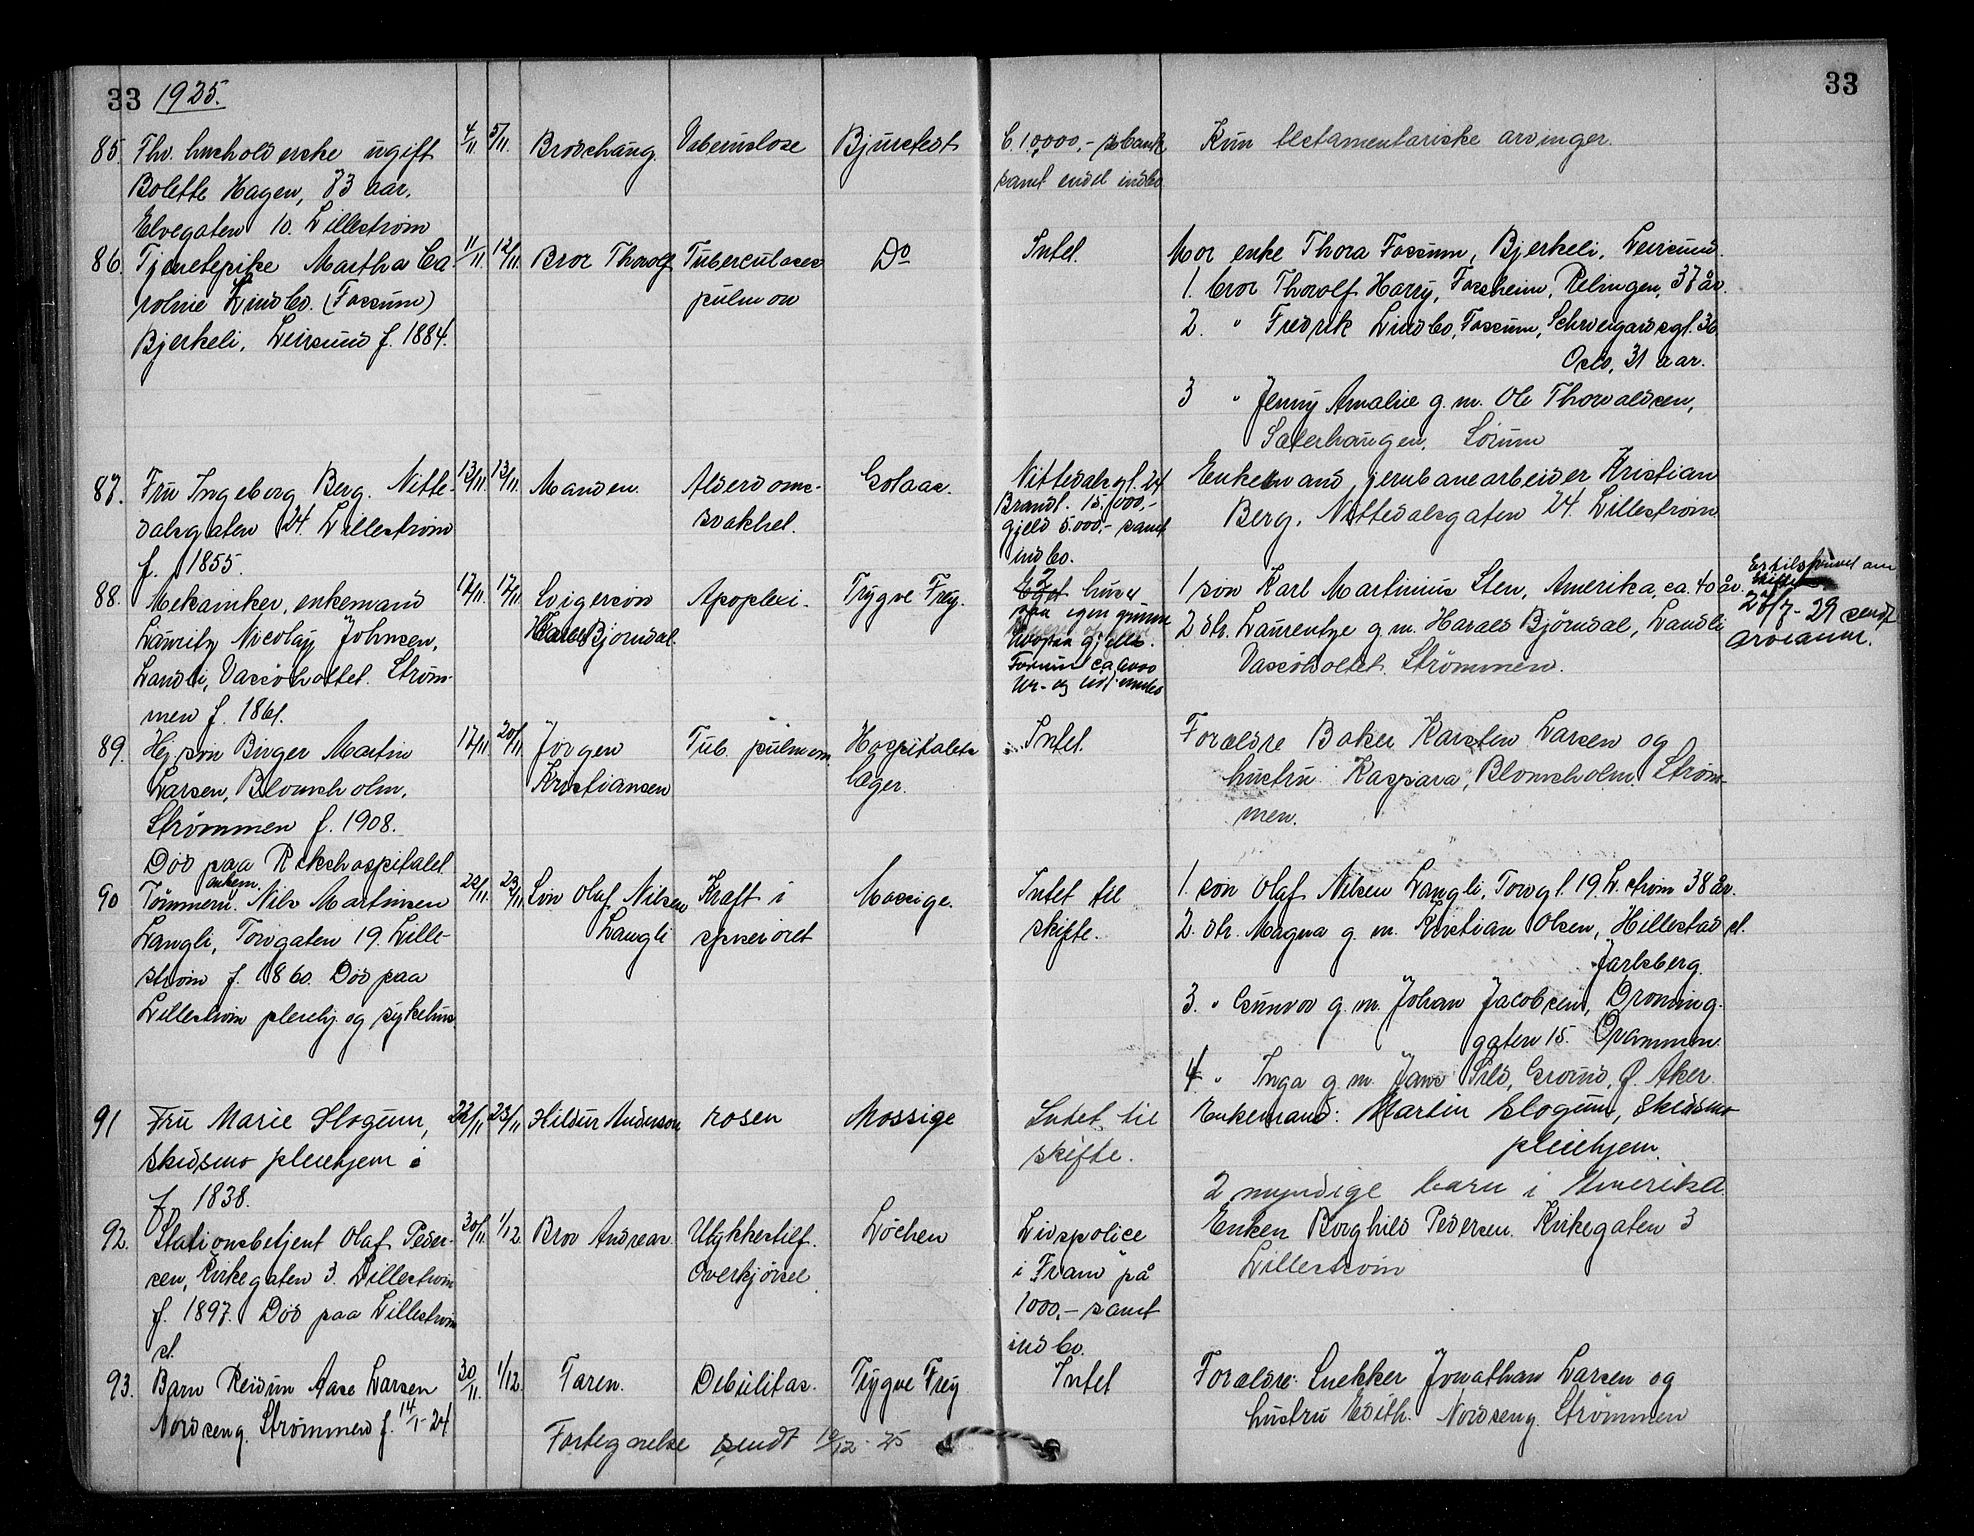 33 1925.
33
85. Fhv. husholderske ugift 4/11 5/11. Brodschaug. Bjurstedt C. 10,000,- i bank Kun testamentariske arvinger.
Bolette Hagen, 83 aar. samt endel indbo
Elvegaten 10. Lillestrøm
86. Tjenestepike Martha Ca- 11/11 12/11. Bror Thorolf Tuberculoses Do Intet. Mor enke Thora Fossum, Bjerkeli, Leirsund.
roline Lindbo. (Fossum) pulmon 1. bror Thorolf Harry, Fossheim, Relingen, 37 år.
Bjerkeli, Leirsund f. 1884. 2. " Fredrik Lindbo, Fossum, Schweigardsgt. 36
Oslo, 31 aar.
3 " Jenny Amalie g. m. Ole Thorvaldsen,
Saterhaugen, Sørum
87. Fru Ingeborg Berg. Nitte- 13/11. 13/11. Manden. Alderdoms- Golaas. Nittedalsgt. 24 Enkemand jernbanearbeider Kristian
dalsgaten 24. Lillestrøm svakhet. Brandt. 15,000,- Berg, Nittedalsgaten 24. Lillestrøm
f. 1855. gjeld 5.000,- samt
indbo.
88. Mekaniker, enkemand 17/11. 17/11. Svigersøn Apoplexi. Trygve Frey. 2 huser 1 søn Karl Martinius Sten, Amerika, ca. 40 år.
Lauritz Nicolay Johnsen, Harald Bjørndal. paa egen grunn 2 dtr. Laurentze g. m. Harald Bjørndal, Landli
Landli, Vassøholtet. Strøm- gjeld. Vassøholtet. Strømmen.
men f. 1861. Formue ca 6000
27/7 - 29 sendt
arveanm.
89. Hj. søn Birger Martin 17/11 20/11. Jørgen Tub. pulmon. Hospitalets Intet. Forældre Baker Karsten Larsen og
Larsen, Blomsholm, Kristiansen læger. hustru Kaspara, Blomsholm. Strøm-
Strømmen f. 1908. men.
Død paa Rikshospitalet.
90 Tømmerm. enkem. Nils Martinsen 22/11. 23/11 Søn Olaf Nilsen Kræft i Mossige. Intet til 1. søn Olaf Nilsen Langli, Torvgt. 19. L.strøm 38 år.
Langli, Torvgaten 19. Lille- Langli spiserøret skifte. 2. dtr. Magna g. m. Kristian Olsen, Hillestad st.
strøm f. 1860. Død paa Jarlsberg.
Lillestrøm pleiehj. og sykehus 3. " Gunvor g. m. Johan Jacobsen, Dronning.
gaten 15. Drammen.
4 " Inga g. m. Jans Sild, Grorud, Ø. Aker.
91 Fru Marie Slogum, 22/11 23/11 Hildur Anderson rosen Mossige Intet til Enkemand: Martin Slogum, Skedsmo
Skedsmo pleiehjem skifte. pleiehjem.
f. 1838. 2 myndige barn i Amerika.
92. Stationsbetjent Olaf Peder- 30/11 1/12 Bror Andreas Ulykkestilf. Løchen Livspolice Enken Borghild Pedersen. Kirkegaten 3
sen, Kirkegaten 3. Lillestrøm Overkjørsel i "Fram" på Lillestrøm
f. 1897. Død paa Lillestrøm 1000,- samt
st. indbo.
93. Barn Reidun Aase Larsen 30/11. 1/12. Faren. Debilitas. Trygve Frey Intet Forældre: Snekker Jonathan Larsen og
Nordseng. Strømmen f. 14/1-24 hustru Edith. Nordseng. Strømmen
Fortegnelse sendt 10/12-25